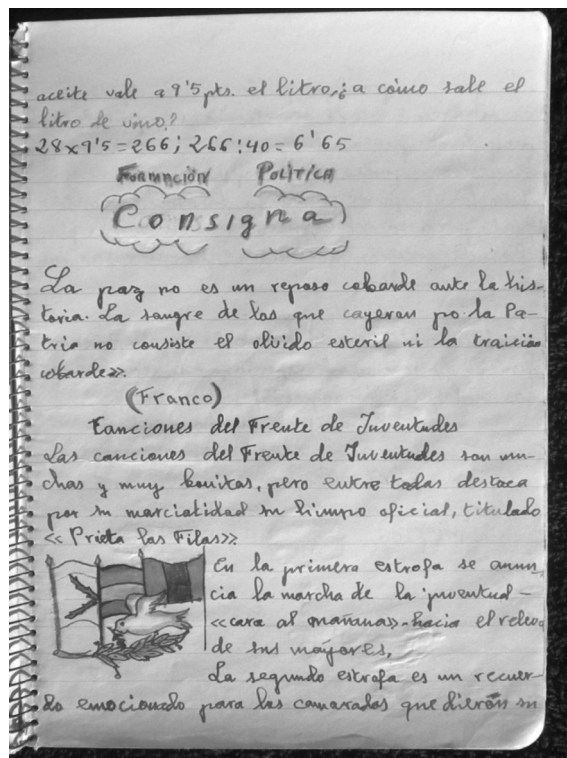 aceite vale a 9'5 pts. el litro, ¿a cómo sale el
litro de vino?
28x9'5=266; 266:40=6'65
Formación Política
Consigna
La paz no es un reposo cobarde ante la his-
toria. La sangre de los que cayeron po la Pa-
tria no consiste el olvido esteril ni la traición
cobarde».
(Franco)
Canciones del Frente de Juventudes
Las canciones del Frente de Juventudes son mu-
chas y muy bonitas, pero entre todas destaca
por su marcialidad su himno oficial, titulado
«Prieta las Filas»
En la primera estrofa se anun
cia la marcha de la juventud-
«cara al mañana»-hacia el relevo
de sus mayores,
La segundo estrofa es un recuer-
do emocionado para los camaradas que dieron su